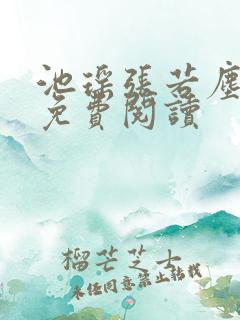 池瑤張若塵
免費閱讀
榴芒芝士
未經同意禁止轉載